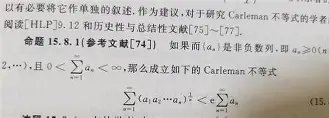 以有必要将它作单独的叙述.作为建议,对于研究 Carleman 不等式的学者
阅读[HLP]9.12 和历史性与总结性文献[75]~[77].
命题 15.8.1(参考文献[74]) 如果而{aₙ}是非负数列,即 aₙ≥0(n
2,⋯),且 0<∑_{n=1}^{∞}aₙ<∞,那么成立如下的 Carleman 不等式
∑_{n=1}^{∞}(a₁a₂⋯aₙ)^{1/n}<e∑_{n=1}^{∞}aₙ (15.